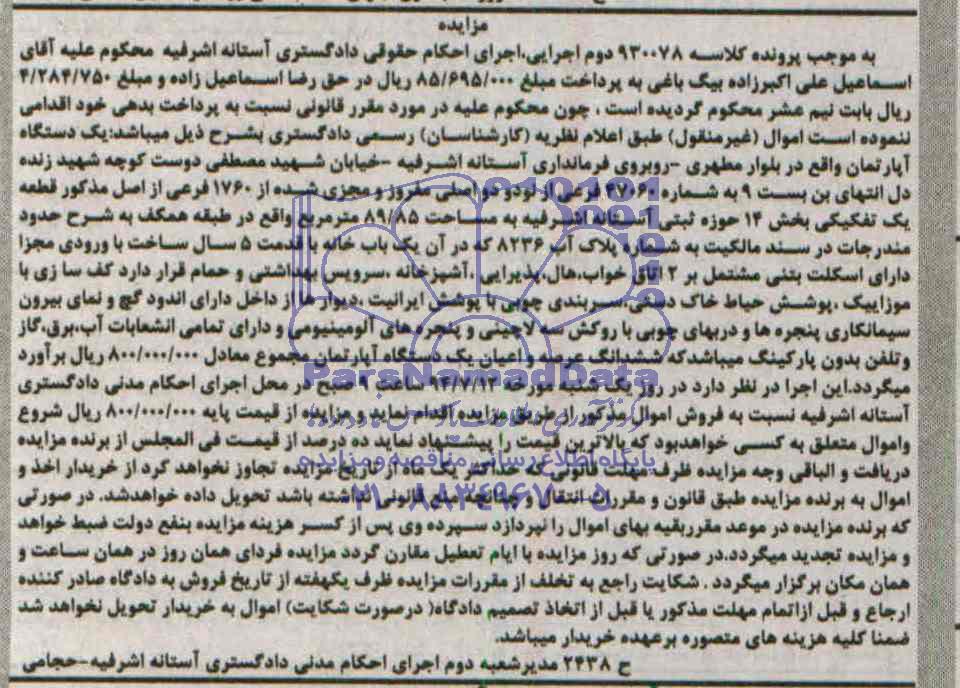 مزایده
به موجب پرونده کلاسه ۹۳۰۰۷۸ دوم اجرایی،اجرای احکام حقوقی دادگستری آستانه اشرفیه محکوم علیه آقای
اسماعیل علی اکبرزاده بیگ باغی به پرداخت مبلغ ۸۵/۶۹۵/۰۰۰ ریال در حق رضا اسماعیل زاده و مبلغ ۴/۲۸۴/۷۵۰
ریال بابت نیم عشر محکوم گردیده است . چون محکوم علیه در مورد مقرر قانونی نسبت به پرداخت بدهی خود اقدامی
ننموده است اموال (غیرمنقول) طبق اعلام نظریه (کارشناسان) رسمی دادگستری بشرح ذیل میباشد:یک دستگاه
آپارتمان واقع در بلوار مطهری -روبروی فرمانداری آستانه اشرفیه -خیابان شهید مصطفی دوست کوچه شهید زنده
دل انتهای بن بست ۹ به شماره فرعی از نودو دو اصلی مفروز و مجزی شده از ۱۷۶۰ فرعی از اصل مذکور قطعه
یک تفکیکی بخش ۱۴ حوزه ثبتی آستانه اشرفیه به مساحت ۸۹/۸۵ مترمربع واقع در طبقه همکف به شرح حدود
مندرجات در سند مالکیت به شماره پلاک آب ۸۲۳۶ که در آن یک باب خانه با قدمت ۵ سال ساخت با ورودی مجزا
دارای اسکلت بتنی مشتمل بر ۲ اتاق خواب،هال،پذیرایی ،آشپزخانه ،سرویس بهداشتی و حمام قرار دارد کف سا زی با
موزاییک ،پوشش حیاط خاک دستی،سربندی چوبی با پوشش ایرانیت ،دیوار ها از داخل دارای اندود گچ و نمای بیرون
سیمانکاری پنجره ها و دربهای چوبی با روکش سه لاچینی و پنجره های آلومینیومی و دارای تمامی انشعابات آب،برق،گاز
و تلفن بدون پارکینگ میباشدکه ششدانگ عرصه و اعیان یک دستگاه آپارتمان مجموع معادل ۸۰۰/۰۰۰/۰۰۰ ریال برآورد
میگردد.این اجرا در نظر دارد در روز یک شنبه مورخه ۹۴/۷/۱۲ ساعت ۹ صبح در محل اجرای احکام مدنی دادگستری
آستانه اشرفیه نسبت به فروش اموال مذکور از طریق مزایده اقدام نماید و مزایده از قیمت پایه ۸۰۰/۰۰۰/۰۰۰ ریال شروع
واموال متعلق به کسی خواهدبود که بالاترین قیمت را پیشنهاد نماید ده درصد از قیمت فی المجلس از برنده مزایده
دریافت و الباقی وجه مزایده ظرف مهلت قانونی که حداکثر یک ماه از تاریخ مزایده تجاوز نخواهد کرد از خریدار اخذ و
اموال به برنده مزایده طبق قانون و مقررات انتقال و چنانچه منع قانونی نداشته باشد تحویل داده خواهدشد. در صورتی
که برنده مزایده در موعد مقرربقیه بهای اموال را نپردازد سپرده وی پس از کسر هزینه مزایده بنفع دولت ضبط خواهد
و مزایده تجدید میگردد.در صورتی که روز مزایده با ایام تعطیل مقارن گردد مزایده فردای همان روز در همان ساعت و
همان مکان برگزار میگردد . شکایت راجع به تخلف از مقررات مزایده ظرف یکهفته از تاریخ فروش به دادگاه صادر کننده
ارجاع و قبل ازاتمام مهلت مذکور یا قبل از اتخاذ تصمیم دادگاه( درصورت شکایت) اموال به خریدار تحویل نخواهد شد
ضمنا کلیه هزینه های متصوره برعهده خریدار میباشد.
ح ۲۴۳۸ مدیرشعبه دوم اجرای احکام مدنی دادگستری آستانه اشرفیه-حجامی
ParsNamadData
پایگاه اطلاع رسانی مناقصه و مزایده